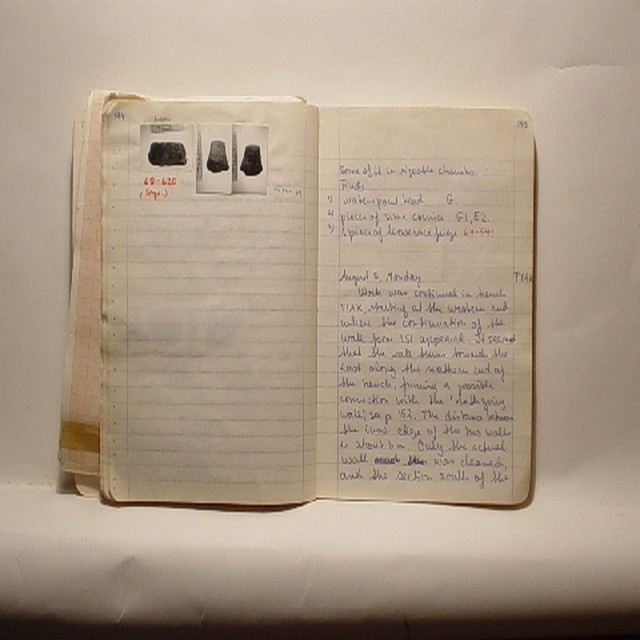 194
68-420
145
Some of it in sizeable chunks.
Finds
1) waterspout head G
2) pieces of sima cornice E1, E2.
3) 1 piece of
August 5, Monday
TIAK
Work was continued in trench
TIAK, starting at the western end
where the continuation of the
wall from 151 appeared. It seemed
that the wall turns towards the
East along the northern end of
the trench, forming a possible
connection with the "north going
wall", see p 152. The distance between
the inner edge of the two walls
is about 6m. Only the actual
wall was cleaned,
and the section south of the